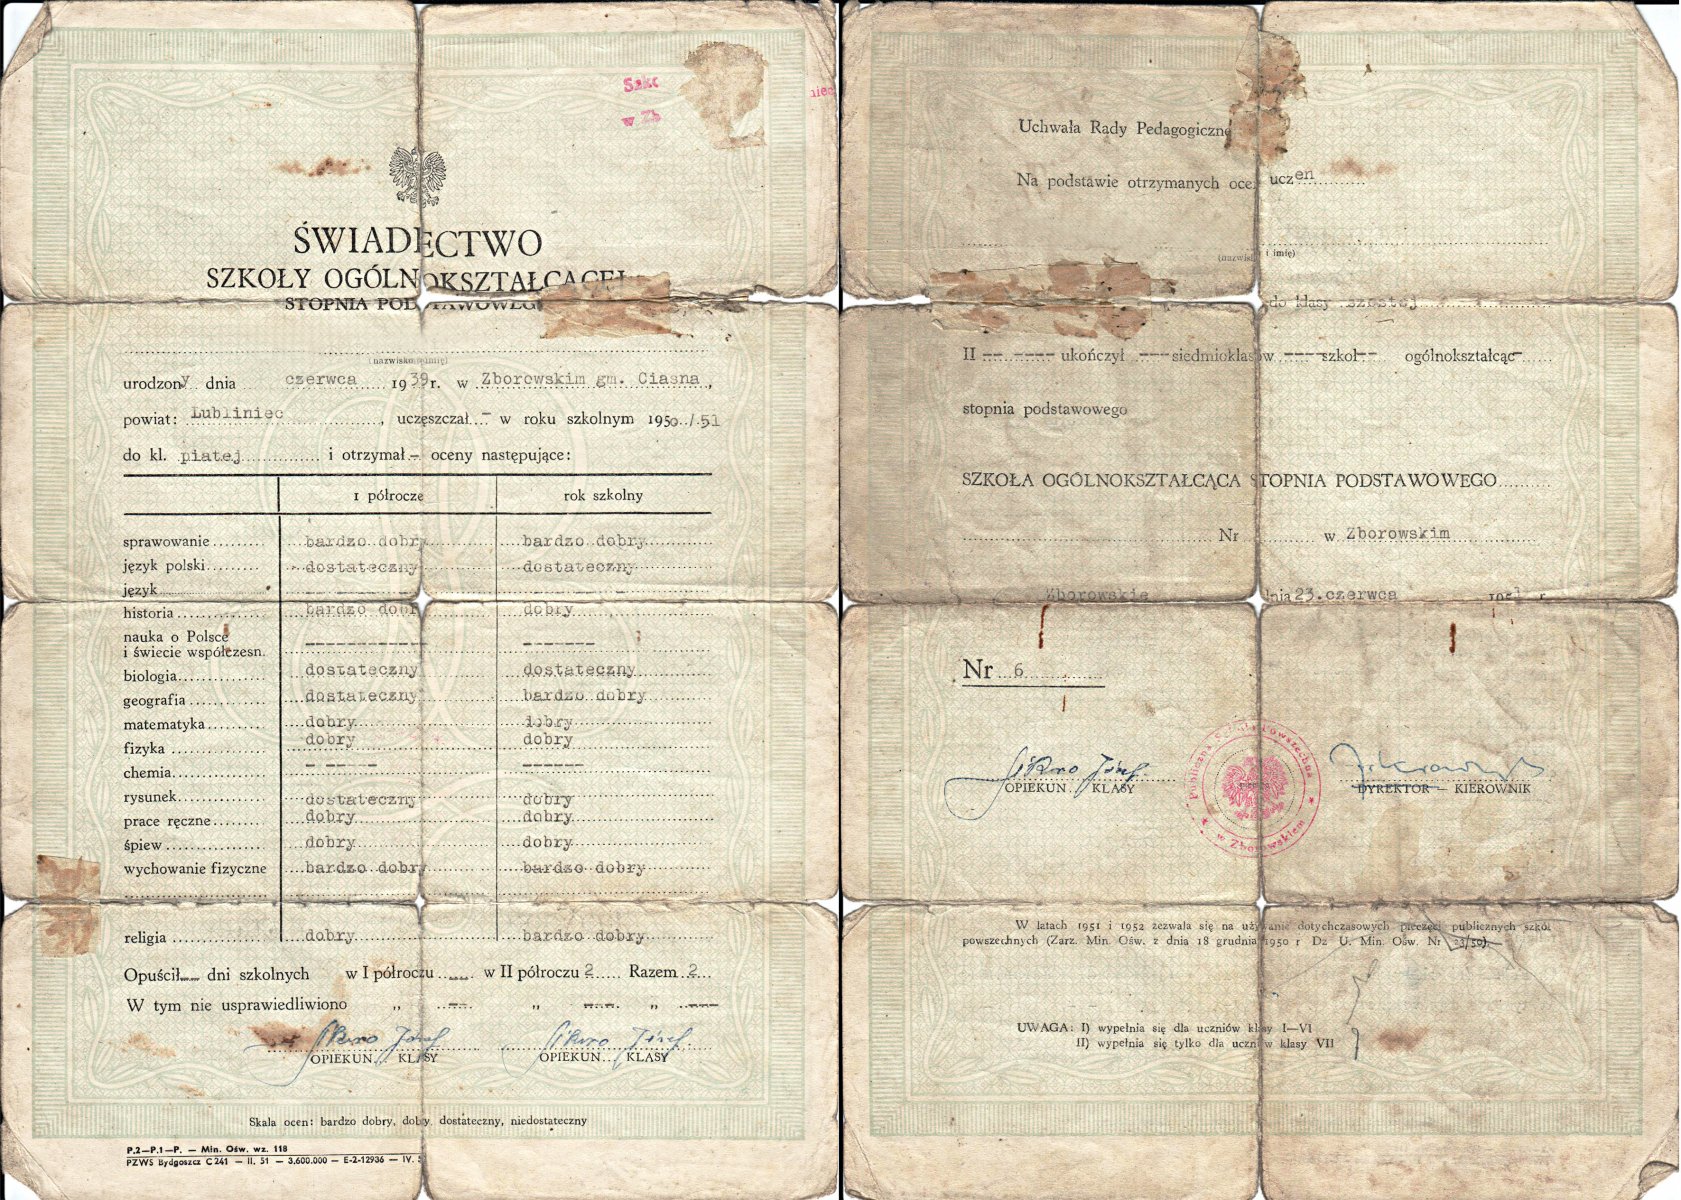 Szko
w Zb
ŚWIADECTWO
SZKOŁY OGÓLNOKSZTAŁCĄCEJ
STOPNIA PODSTAWOWEGO
(nazwisko i imię)
urodzony dnia czerwca 1939 r. w Zborowskim gm. Ciasna,
powiat: Lubliniec, uczęszczał - w roku szkolnym 1950/51
do kl. piatej i otrzymał - oceny następujące:
1 półrocze rok szkolny
sprawowanie bardzo dobry bardzo dobry
język polski dostateczny dostateczny
język
historia bardzo dobr dobry
nauka o Polsce
i świecie współczesn. ---------- -------
biologia dostateczny dostateczny
geografia dostateczny bardzo dobry
matematyka dobry dobry
fizyka dobry dobry
chemia - ----- ------
rysunek dostateczny dobry
prace ręczne dobry dobry
śpiew dobry dobry
wychowanie fizyczne bardzo dobry bardzo dobry
religia dobry bardzo dobry
Opuścił -- dni szkolnych w I półroczu --- w II półroczu 2 Razem 2
W tym nie usprawiedliwiono „ --- „ --- „ ---
OPIEKUN KLASY OPIEKUN KLASY
Skala ocen: bardzo dobry, dobry, dostateczny, niedostateczny
P.2—P.1—P. — Min. Ośw. wz. 118
PZWS Bydgoszcz C 241 — II. 51 — 3,600.000 — E-2-12936 — IV. 5
niec
Uchwała Rady Pedagogiczne
Na podstawie otrzymanych ocen uczen
(nazwisko i imię)
do klasy szostej
II -- ---- ukończył --- siedmioklasow ---- szkoł -- ogólnokształcąc -
stopnia podstawowego
SZKOŁA OGÓLNOKSZTAŁCĄCA STOPNIA PODSTAWOWEGO
Nr w Zborowskim
Zborowskie dnia 23.czerwca 1951 r.
Nr 6
Publiczna Szkoła Powszechna
w Zborowskiem
OPIEKUN KLASY DYREKTOR — KIEROWNIK
W latach 1951 i 1952 zezwala się na używanie dotychczasowych pieczęci publicznych szkół
powszechnych (Zarz. Min. Ośw. z dnia 18 grudnia 1950 r Dz U. Min. Ośw. Nr 23/50).
UWAGA: I) wypełnia się dla uczniów klasy I—VI
II) wypełnia się tylko dla uczniów klasy VII